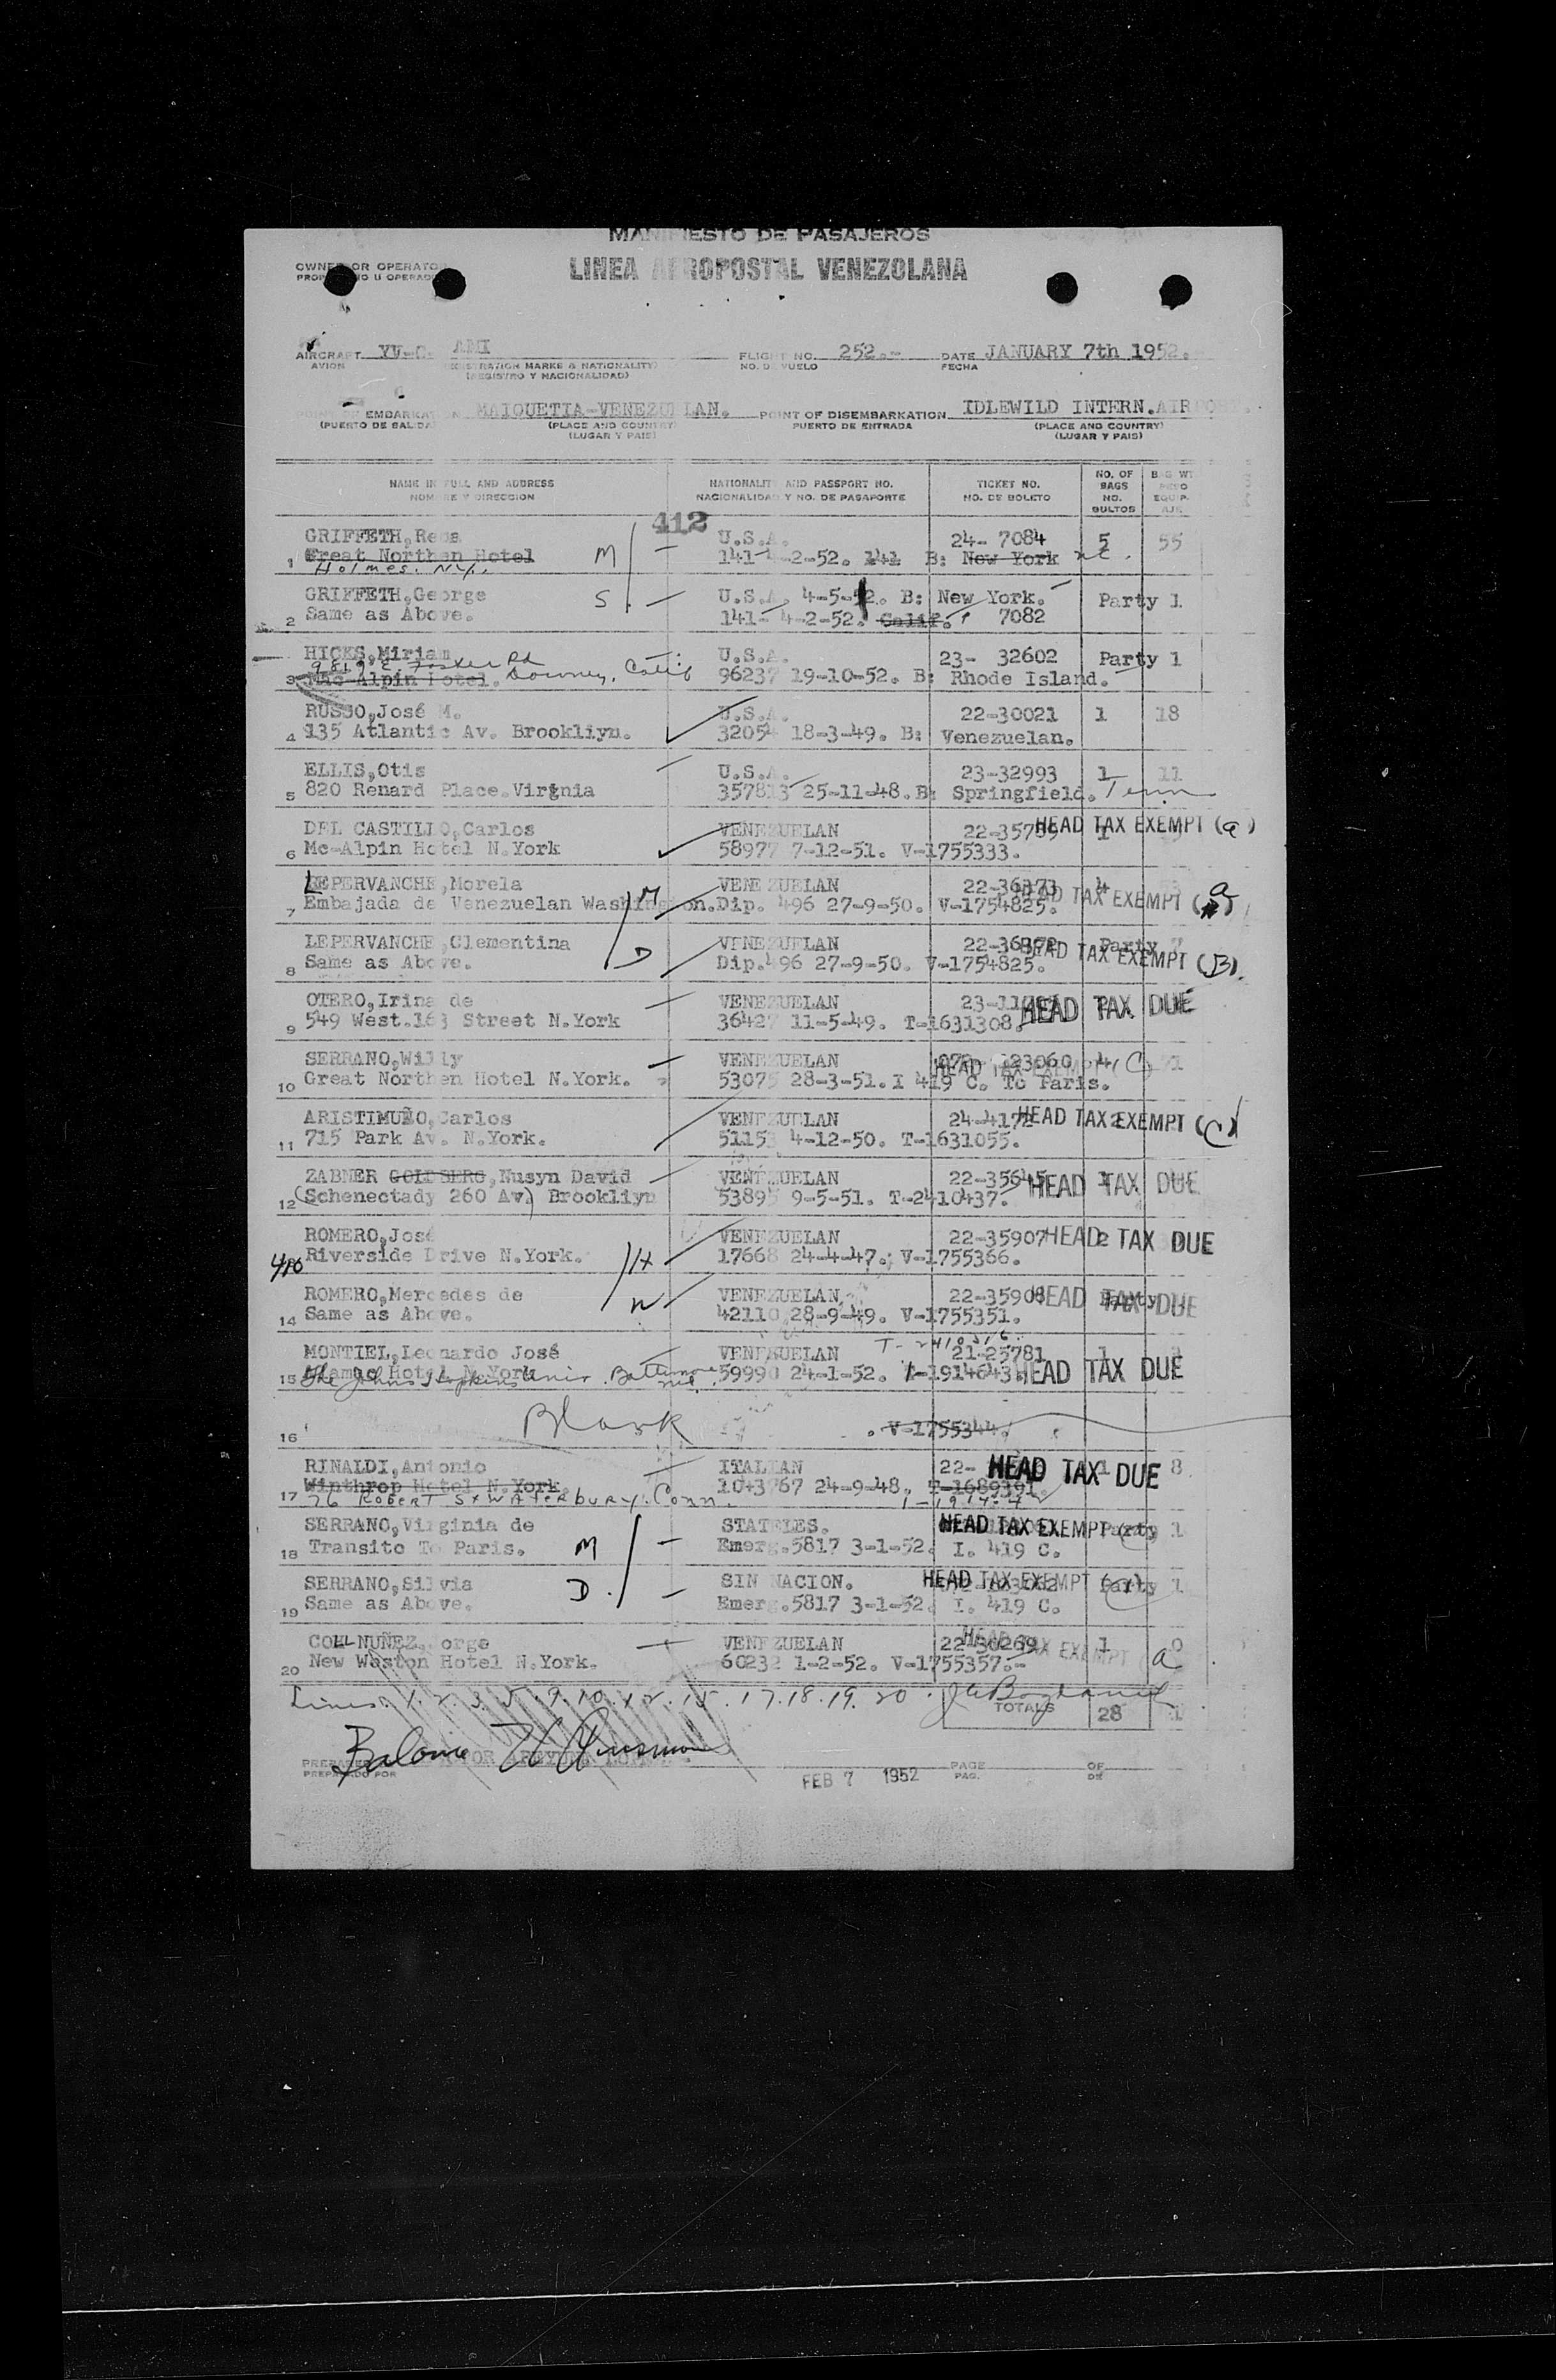 MANIFIESTO DE PASAJEROS
OWNER OR OPERATOR
LINEA AEROPOSTAL VENEZOLANA
AIRCRAFT YV-C- AMI FLIGHT NO. 252.- DATE JANUARY 7th 1952.
AVION NO. DE VUELO FECHA
(REGISTRO Y NACIONALIDAD)
POINT OF EMBARKATION MAIQUETIA-VENEZUELAN. POINT OF DISEMBARKATION IDLEWILD INTERN.AIRPORT
(PUERTO DE SALIDA (PLACE AND COUNTRY) PUERTO DE ENTRADA (PLACE AND COUNTRY)
(LUGAR Y PAIS) (LUGAR Y PAIS)
NAME IN FULL AND ADDRESS NATIONALITY AND PASSPORT NO. TICKET NO. NO. OF BAGS BAG WT
NOMBRE Y DIRECCION NACIONALIDAD Y NO. DE PASAPORTE NO. DE BOLETO NO. BULTOS PESO EQUIPAJE
412
GRIFFETH, U.S.A. 24- 7084 5 55
1 Great Northen Hotel M 141- 4-2-52. 141 B: New York
Holmes. N.Y.
GRIFFETH,George S. U.S.A. 4-5-12. B: New York. Party 1
2 Same as Above. 141- 4-2-52. Calif. 7082
HICKS,Miriam U.S.A. 23- 32602 Party 1
9819 E. Foster Rd Downey, Calif
3 Mac-Alpin Hotel. 96237 19-10-52. B: Rhode Island.
RUSSO,José M. U.S.A. 22-30021 1 18
4 135 Atlantic Av. Brookliyn. 32054 18-3-49. B: Venezuelan.
ELLIS,Otis U.S.A. 23-32993 1 11
5 820 Renard Place.Virginia 357813 25-11-48.B: Springfield. Tenn
DEL CASTILLO,Carlos VENEZUELAN 22-35759 1 HEAD TAX EXEMPT (a)
6 Mc-Alpin Hotel N.York 58977 7-12-51. V-1755333.
LEPERVANCHE,Morela M VENEZUELAN 22-36373 4 HEAD TAX EXEMPT (a)
7 Embajada de Venezuelan Washington. Dip. 496 27-9-50. V-1754825.
LEPERVANCHE,Clementina VENEZUELAN 22-36372 Party 7
8 Same as Above. D Dip.496 27-9-50. V-1754825. HEAD TAX EXEMPT (B)
OTERO,Irina de VENEZUELAN HEAD TAX DUE
9 549 West.163 Street N.York 36427 11-5-49. T-1631308.
SERRANO,Willy VENEZUELAN 23060 4 HEAD TAX EXEMPT (C)
10 Great Northen Hotel N.York. 53075 28-3-51. I 419 C. To Paris.
ARISTIMUÑO,Carlos VENEZUELAN 24-4172 2 HEAD TAX EXEMPT (C)
11 715 Park Av. N.York. 51153 4-12-50. T-1631055.
ZABNER GOLDBERG,Nusyn David VENEZUELAN 22-35645 1 HEAD TAX DUE
12 (Schenectady 260 Av) Brookliyn 53895 9-5-51. T-2410437.
ROMERO,José VENEZUELAN 22-35907 2 HEAD TAX DUE
410 Riverside Drive N.York. H 17668 24-4-47. V-1755366.
ROMERO,Mercedes de W VENEZUELAN 22-35908 Party HEAD TAX DUE
14 Same as Above. 42110 28-9-49. V-1755351.
T-2410516.
MONTIEL,Leonardo José VENEZUELAN 21-25781 1
15 Alamac Hotel N.York 59990 24-1-52. T-1914643. HEAD TAX DUE
The Johns Hopkins Univ. Baltimore Md.
16 Blank V-1755344.
RINALDI,Antonio ITALIAN 22- 1 8 HEAD TAX DUE
17 Winthrop Hotel N.York. 1043767 24-9-48. T-1689391.
76 Robert St Waterbury. Conn.
SERRANO,Virginia de STATELES. HEAD TAX EXEMPT (C) Party 1
18 Transito To Paris. M Emerg.5817 3-1-52. I. 419 C.
SERRANO,Silvia SIN NACION. HEAD TAX EXEMPT (C) Party 1
19 Same as Above. D. Emerg.5817 3-1-52. I. 419 C.
COLL NUÑEZ,Jorge VENEZUELAN 22-30269 1 0 HEAD TAX EXEMPT a
20 New Weston Hotel N.York. 60232 1-2-52. V-1755357.-
Lines. 1. 2. 3. 5. 9. 10. 12. 15. 17. 18. 19. 20.
TOTALS 28
PREPARED
PREPARADO POR
FEB 7 1952
PAGE OF
PAG. DE